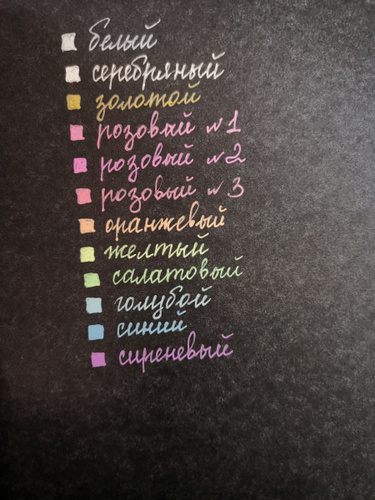 белый
серебряный
золотой
розовый №1
розовый №2
розовый №3
оранжевый
желтый
салатовый
голубой
синий
сиреневый